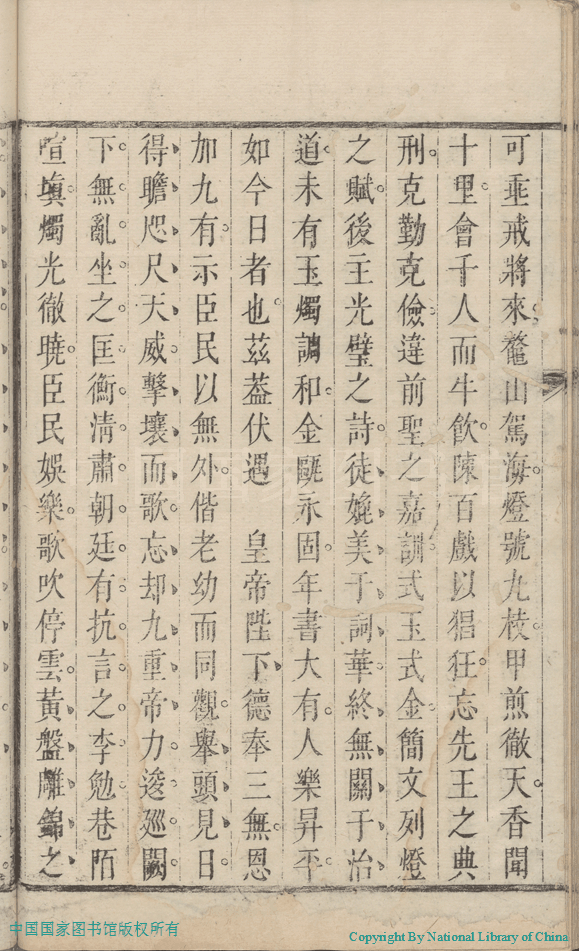 可垂戒將來鼇山駕海燈號九枝甲煎徹天香聞
十里會千人而牛飲陳百戲以猖狂忘先王之典
刑克勤克儉違前聖之嘉訓式玉式金簡文列燈
之賦後主光璧之詩徒娩美于詞華終無關于治
道未有玉燭調和金甌永固年書大有人樂昇平
如今日者也茲葢伏遇　皇帝陛下德奉三無恩
加九有示臣民以無外偕老幼而同觀舉頭見日
得瞻咫尺天威擊壤而歌忘却九重帝力逡廵闕
下無亂坐之匡衡淸肅朝廷有抗言之李勉巷陌
喧塡燭光徹曉臣民娛樂歌吹停雲黃盤雕錦之
中国国家图书馆版权所有
Copyright By National Library of China